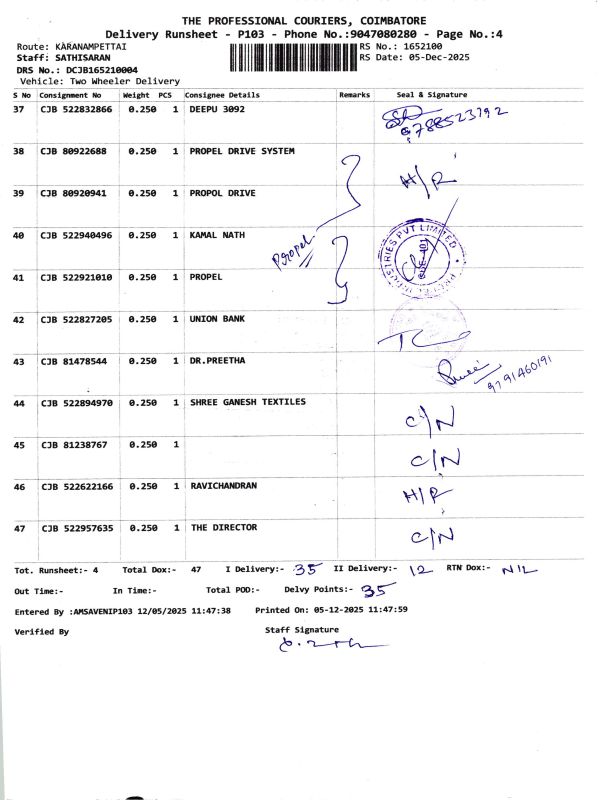 THE PROFESSIONAL COURIERS, COIMBATORE
Delivery Runsheet - P103 - Phone No.:9047080280 - Page No.:4
Route: KARANAMPETTAI RS No.: 1652100
Staff: SATHISARAN RS Date: 05-Dec-2025
DRS No.: DCJB165210004
Vehicle: Two Wheeler Delivery
S No Consignment No Weight PCS Consignee Details Remarks Seal & Signature
37 CJB 522832866 0.250 1 DEEPU 3092
38 CJB 80922688 0.250 1 PROPEL DRIVE SYSTEM H/R
39 CJB 80920941 0.250 1 PROPOL DRIVE
40 CJB 522940496 0.250 1 KAMAL NATH Propel
41 CJB 522921010 0.250 1 PROPEL
42 CJB 522827205 0.250 1 UNION BANK
43 CJB 81478544 1 0.250 1 DR.PREETHA 9791460191
44 CJB 522894970 0.250 1 SHREE GANESH TEXTILES C/N
45 CJB 81238767 0.250 1 C/N
46 CJB 522622166 0.250 1 RAVICHANDRAN H/R
47 CJB 522957635 0.250 1 THE DIRECTOR C/N
Tot. Runsheet:- 4 Total Dox:- 47 I Delivery:- 35 II Delivery:- 12 RTN Dox:- NIL
Out Time:- In Time:- Total POD:- Delvy Points:- 35
Entered By :AMSAVENIP103 12/05/2025 11:47:38 Printed On: 05-12-2025 11:47:59
Verified By Staff Signature